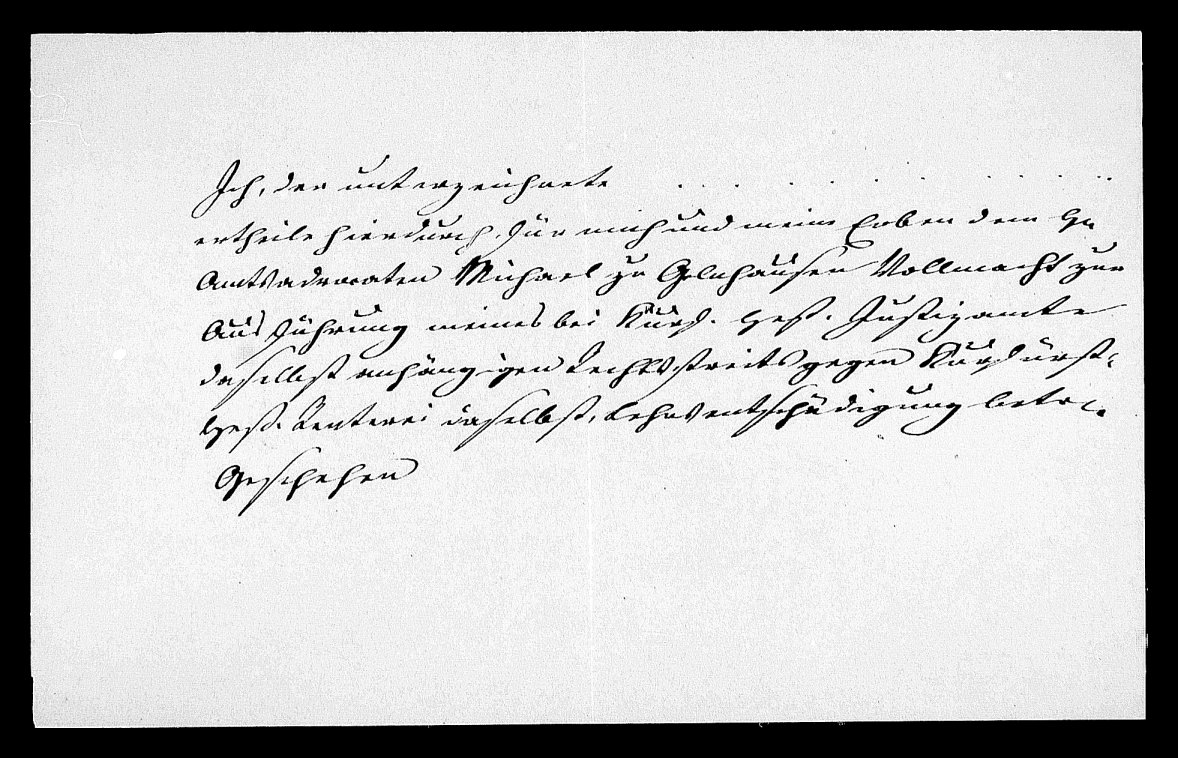 Ich, der unterzeichnete . . . . . . . . . .
ertheile hierdurch, für mich und meine Erben dem H.
Amtsadvocaten Michael zu Gelnhausen Vollmacht zur
Ausführung meines bei Kurf. Heß. Justizamte
daselbst anhängigen Rechtsstreits gegen Kurfürst-
Heß. Renterei daselbst, Lehnsentschädigung betr.
Geschehen